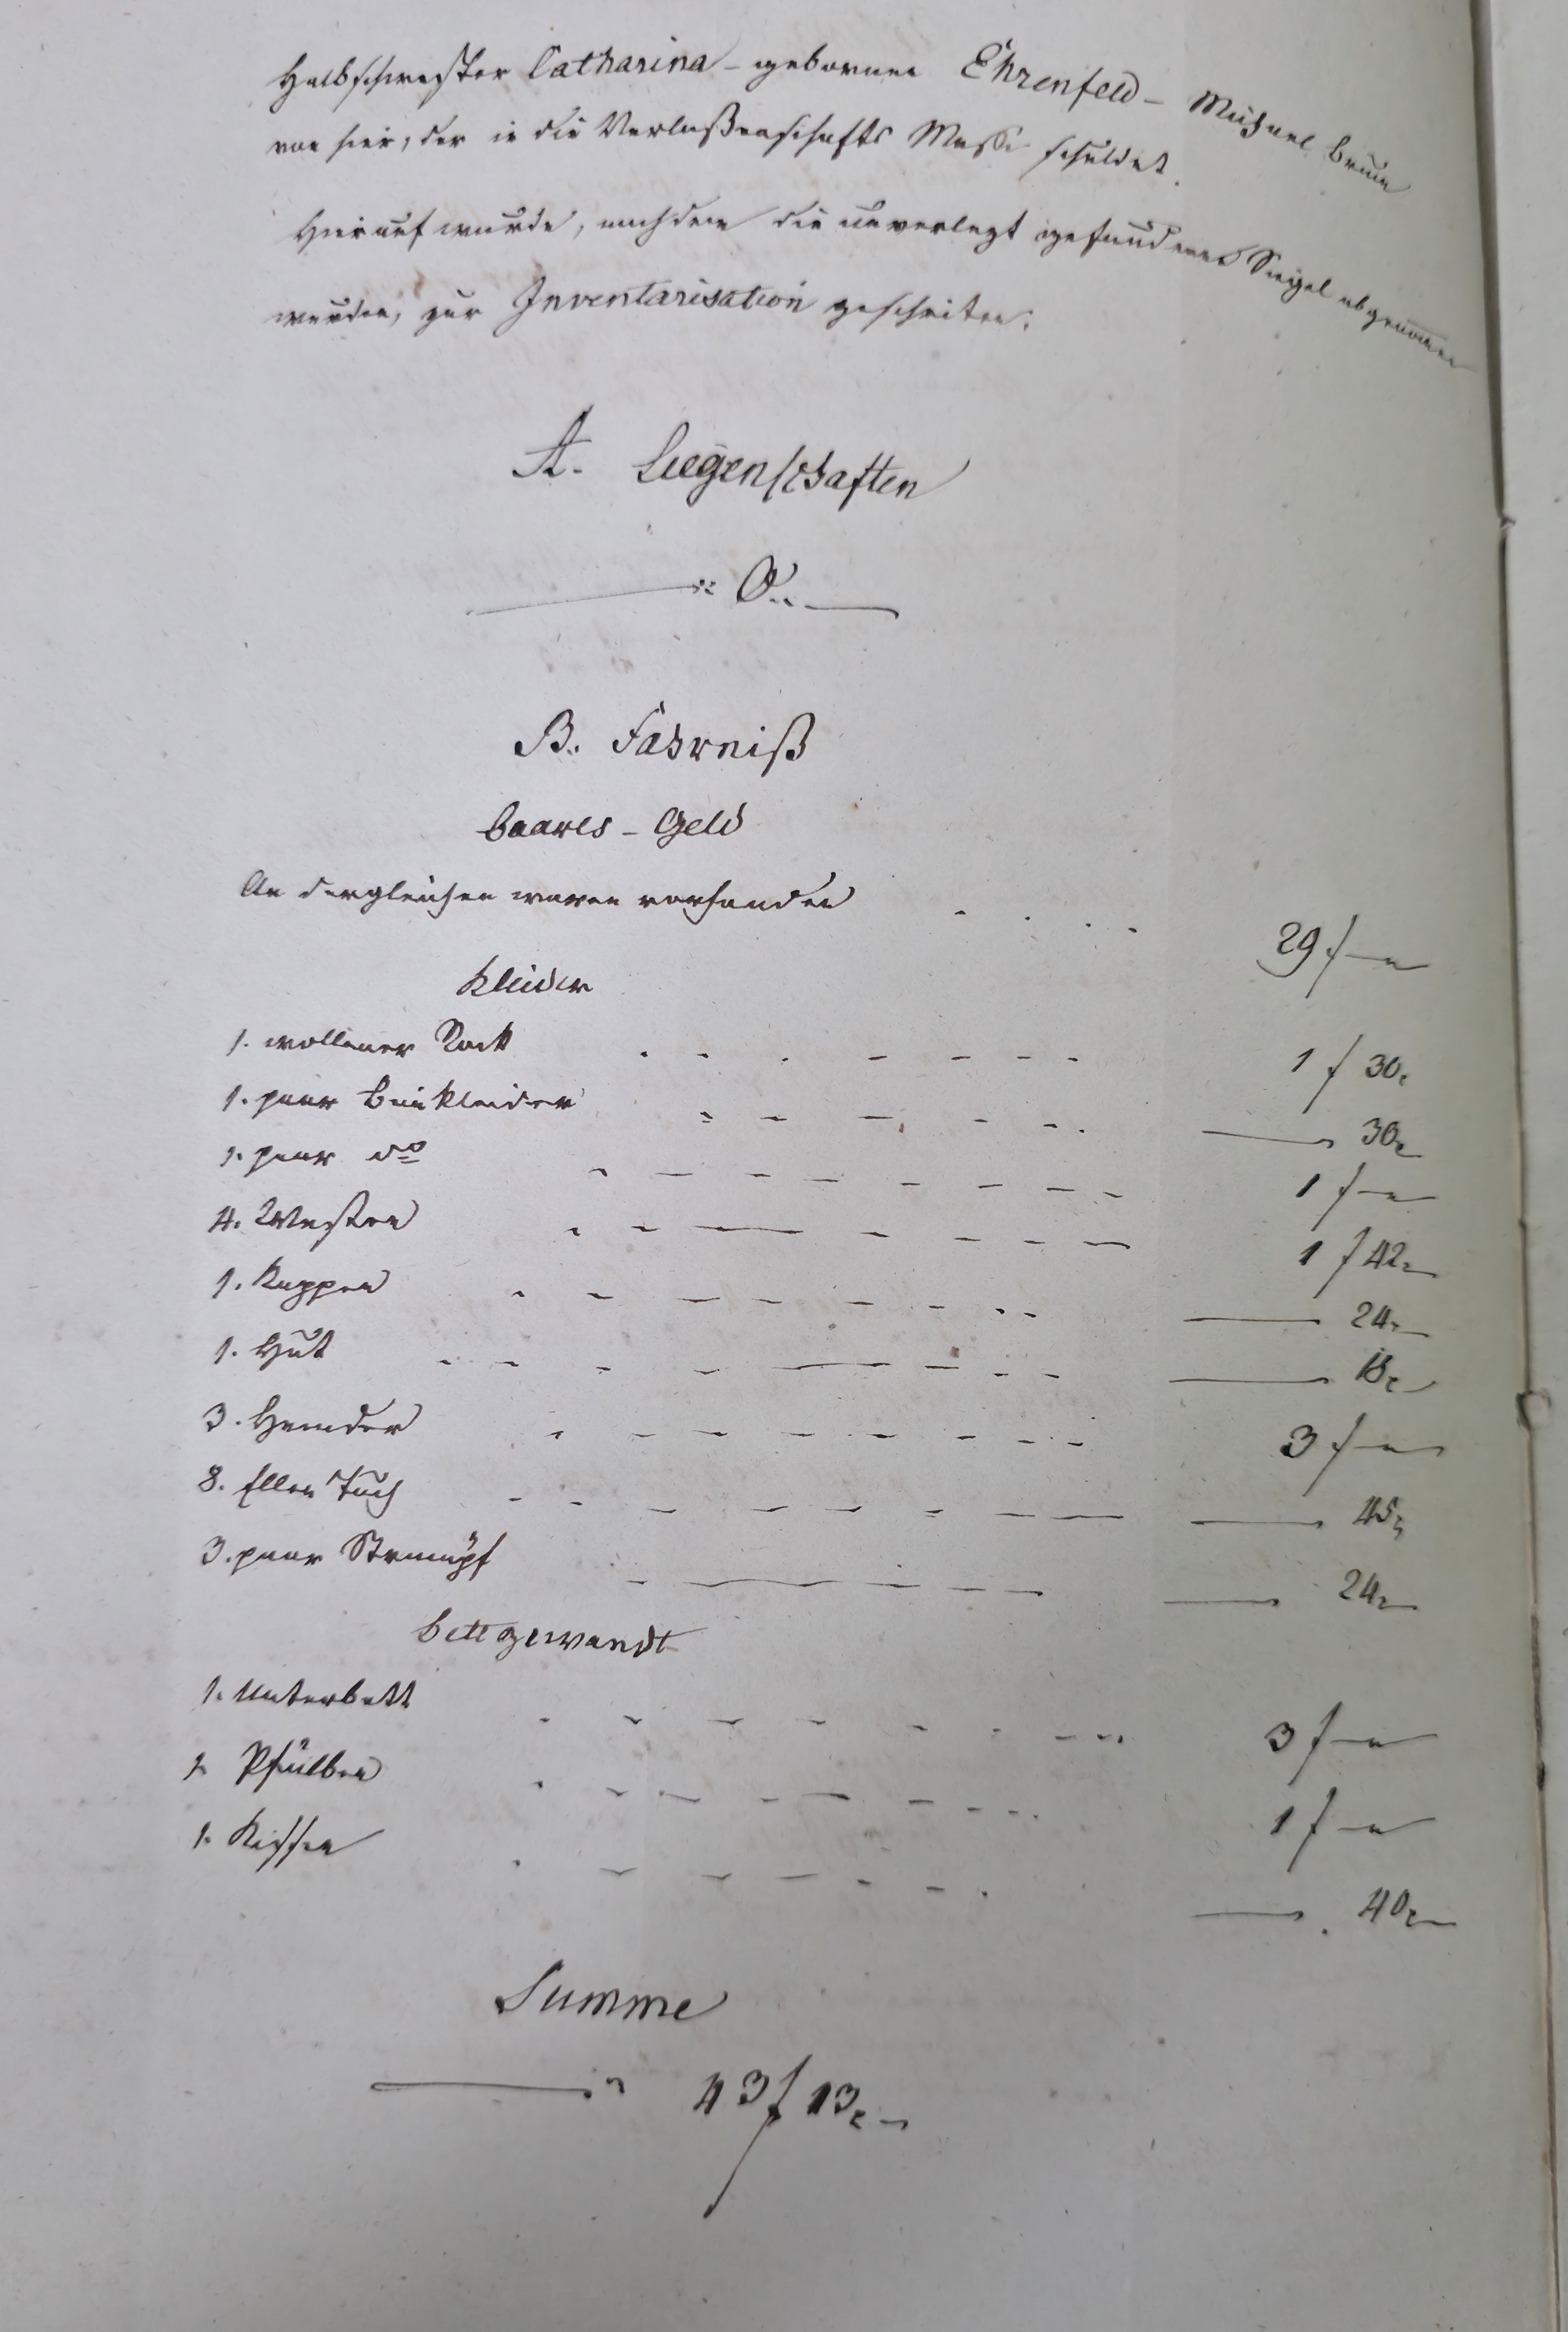 Halbschwester Catharina – gebornen Ehrenfeld – Michael Braun
von hier, der in die Verlaßenschafts Masse schuldet.
Hierauf wurde, nachdem die unverlezt gefundenen Siegel abgenommen
wurden, zur Inventarisation geschriten:
A. Liegenschaften
0.
B. Fahrniß
baares – Geld
An dergleichen waren vorhanden 29 f –
Kleider
1. wollener Rock 1 f 30
1. paar Beinkleider — 30
1. paar do 1 f –
4. Westen 1 f 42
1. Kappen — 24
1. Hut — 18
3. Hemder 3 f –
8. Ellen Tuch — 45
3. paar Strümpf — 24
Bettgewandt
1. Unterbett 3 f –
1. Pfülben 1 f –
1. Kissen — 40
Summe
— 43 f 13